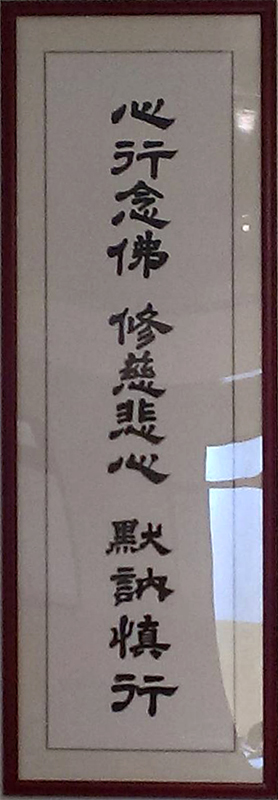 心行念佛 修慈悲心 默訥慎行